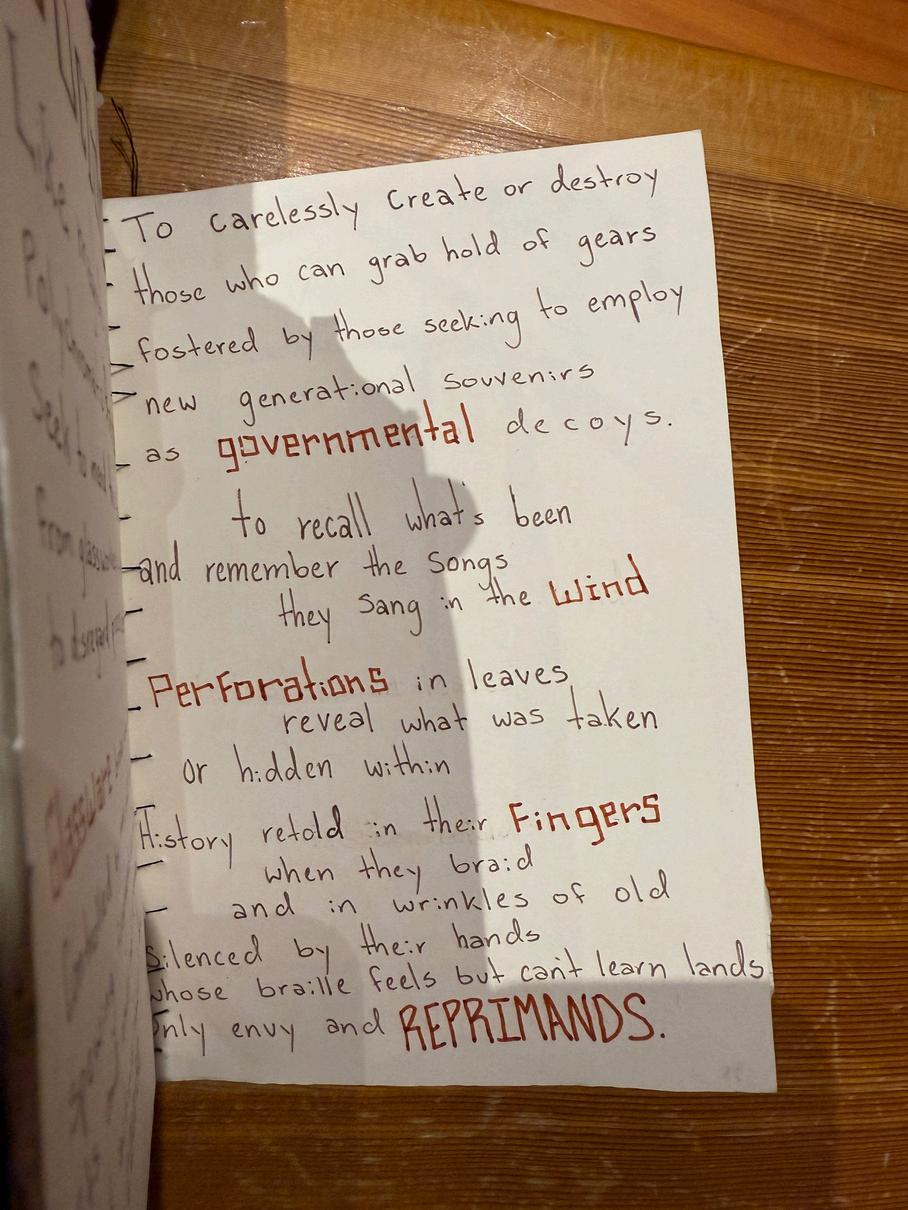 To carelessly create or destroy
those who can grab hold of gears
fostered by those seeking to employ
new generational souvenirs
as governmental decoys.
to recall what's been
and remember the Songs
they Sang in the Wind
Perforations in leaves
reveal what was taken
or hidden within
History retold in their Fingers
when they braid
and in wrinkles of old
Silenced by their hands
whose braille feels but can't learn lands
Only envy and REPRIMANDS.